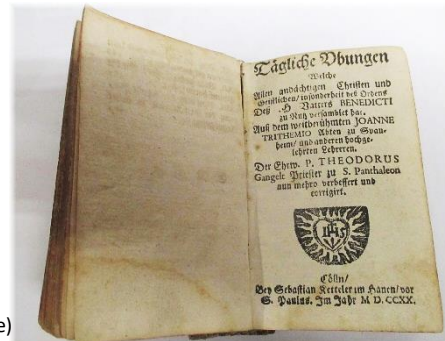 Tägliche Vbungen
Welche
Allen andächtigen Christen und
Geistlichen/ insonderheit des Ordens
Deß H Vatters BENEDICTI
zu Nutz versamblet hat.
Auß dem weitberühmten JOANNE
TRITHEMIO Abten zu Span-
heim/ und anderen hochge-
lehrten Lehreren.
Der Ehrw. P. THEODORUS
Gangelt Priester zu S. Panthaleon
nun mehro verbessert und
corrigirt.
IHS
Cölln/
Bey Sebastian Ketteler im Hanen/ vor
S. Paulus. Im Jahr M D. CCXX.
e)